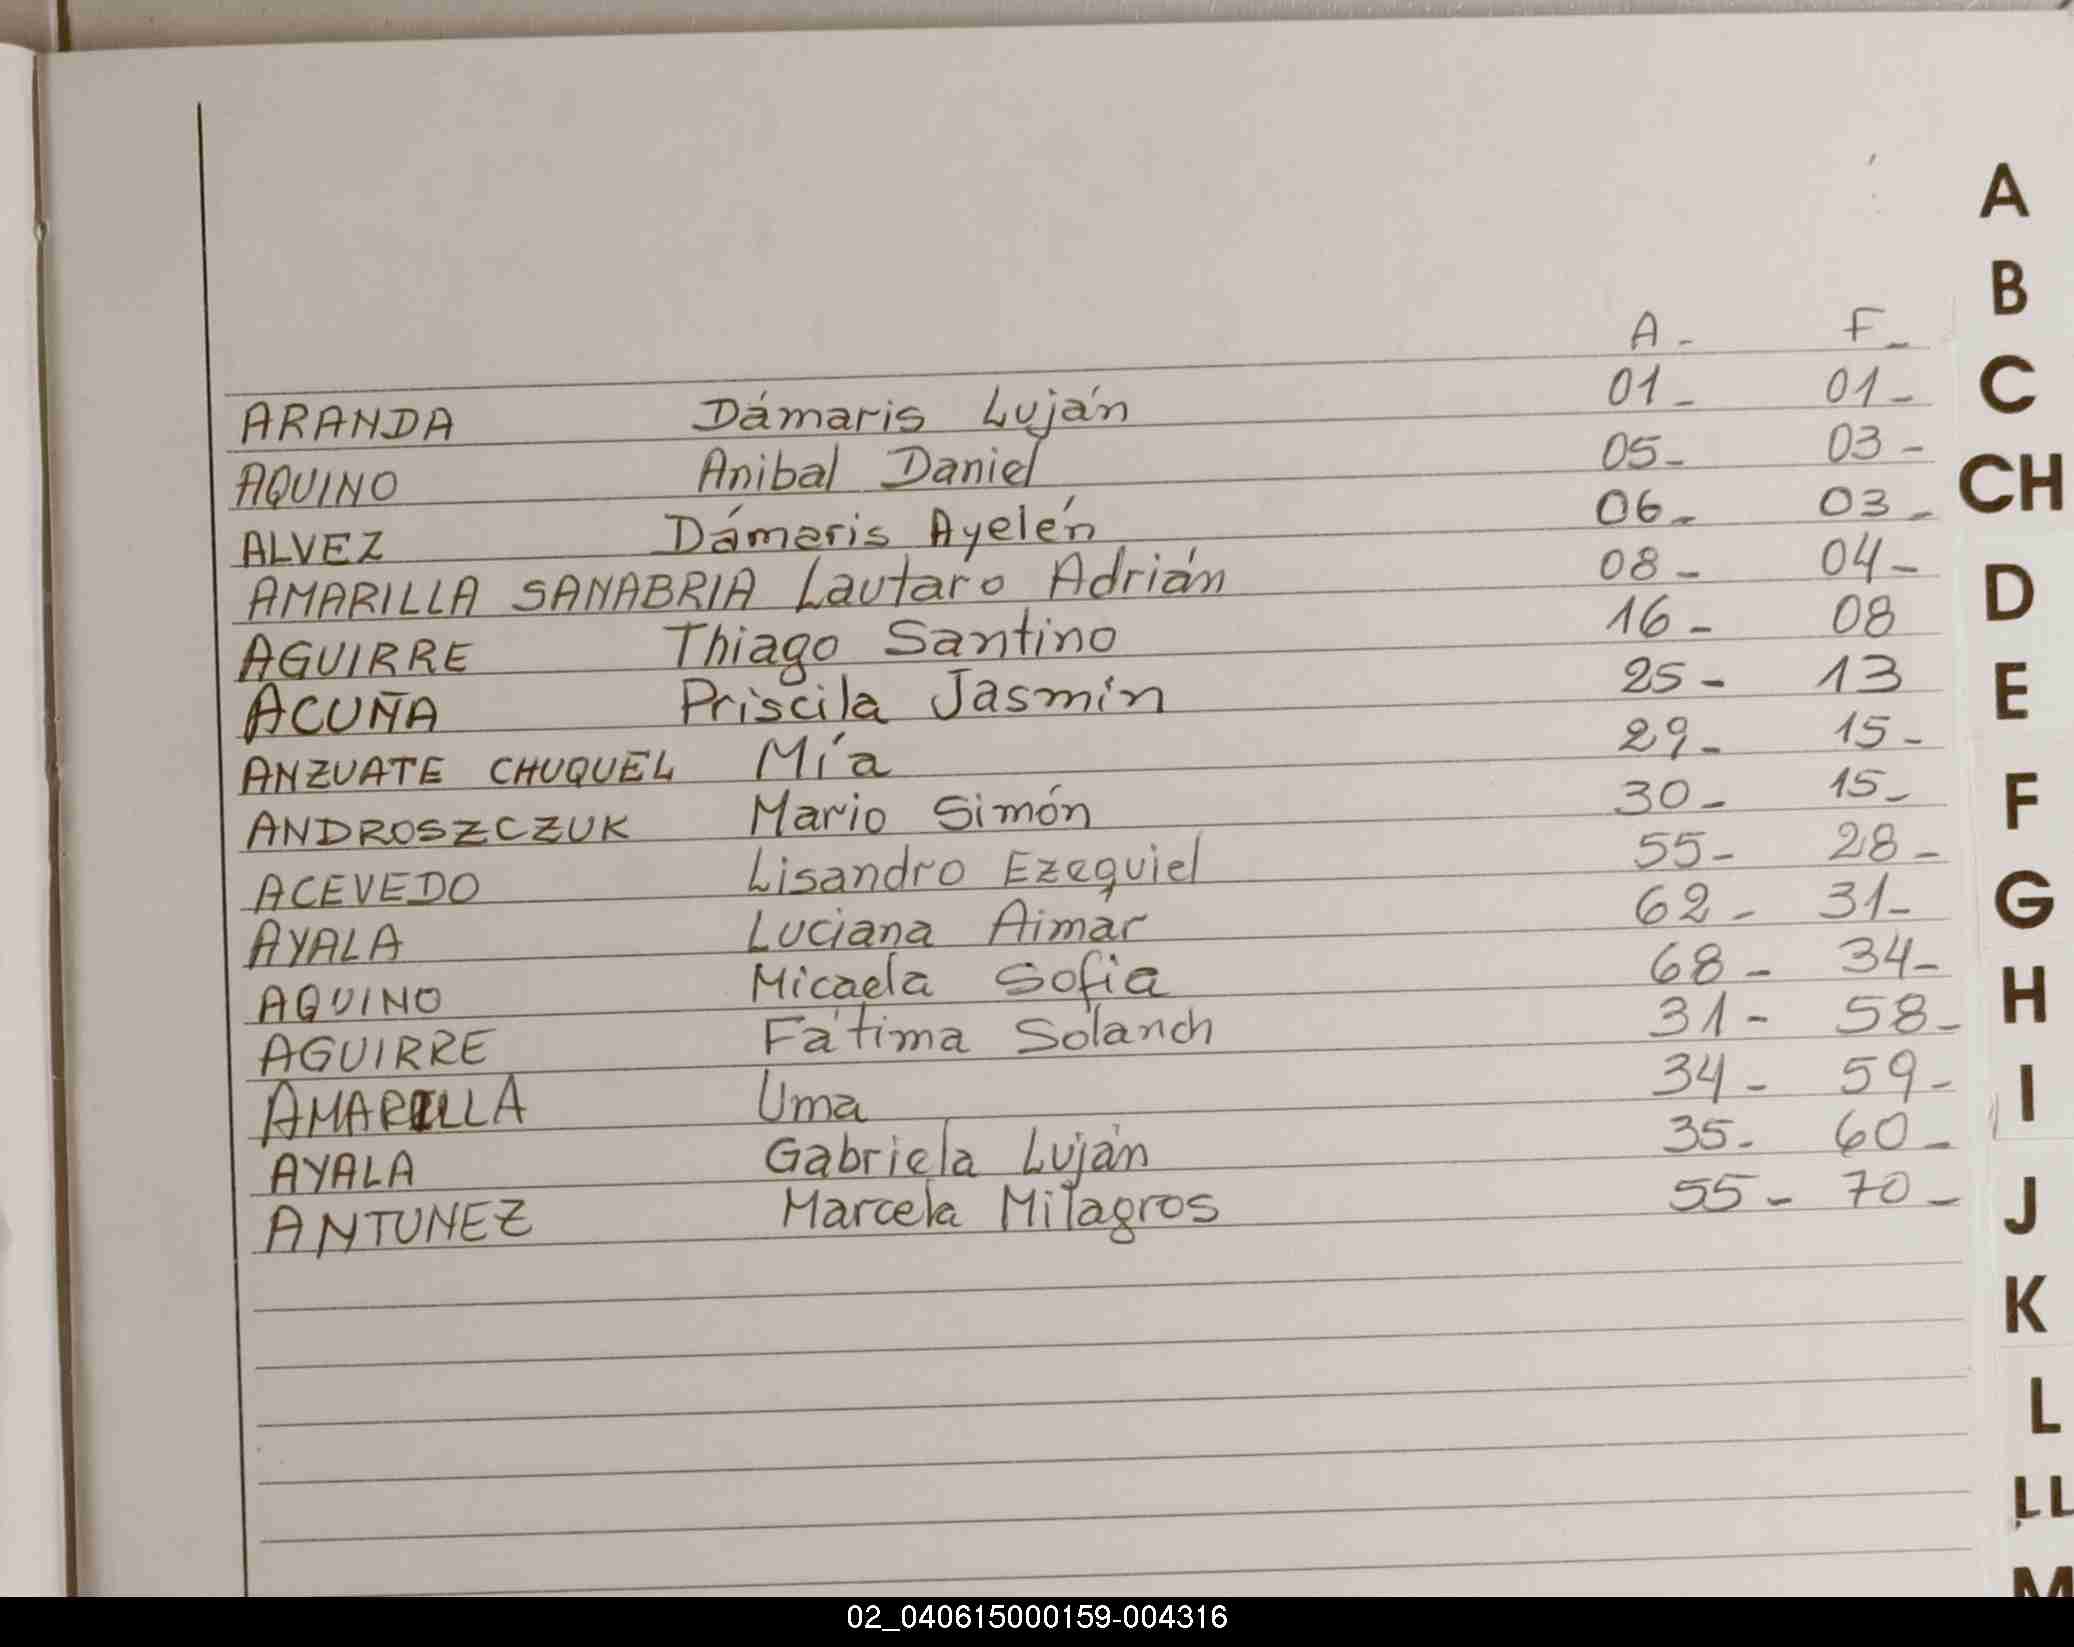 A
B
C
CH
D
E
F
G
H
I
J
K
L
LL
M
A- F-
ARANDA Dámaris Luján 01- 01-
AQUINO Anibal Daniel 05- 03-
ALVEZ Dámaris Ayelén 06- 03-
AMARILLA SANABRIA Lautaro Adrián 08- 04-
AGUIRRE Thiago Santino 16- 08
ACUÑA Priscila Jasmín 25- 13
ANZUATE CHUQUEL Mía 29- 15-
ANDROSZCZUK Mario Simón 30- 15-
ACEVEDO Lisandro Ezequiel 55- 28-
AYALA Luciana Aimar 62- 31-
AQUINO Micaela Sofia 68- 34-
AGUIRRE Fátima Solanch 31- 58-
AMARILLA Uma 34- 59-
AYALA Gabriela Luján 35- 60-
ANTUNEZ Marcela Milagros 55- 70-
02_040615000159-004316